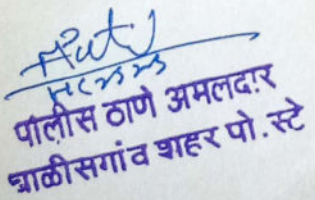 पोलीस ठाणे अमलदार
चाळीसगांव शहर पो. स्टे